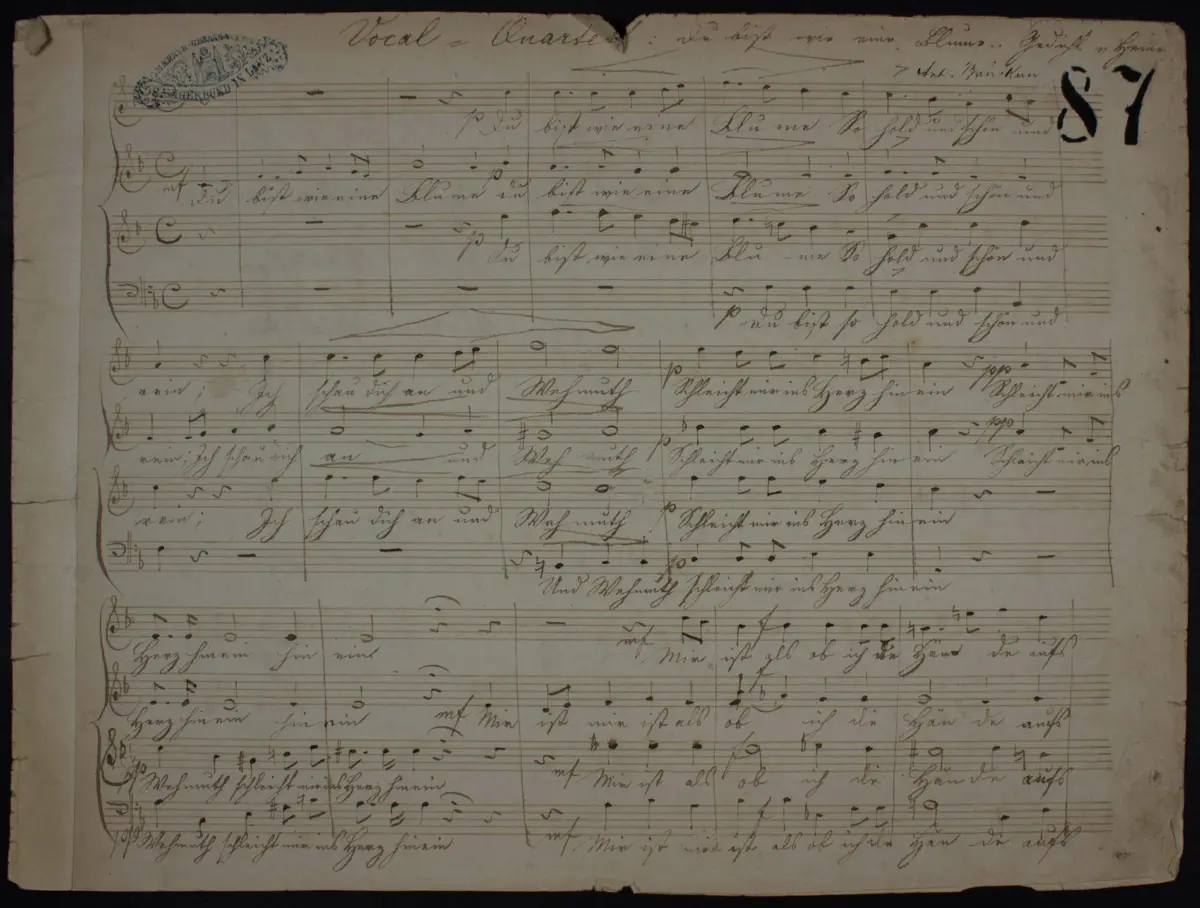 Vocal = Quartett : Du bist wie eine Blume.. Gedicht v Heine
Ant. Bruckner
87
p Du bist wie eine Blu me So hold und schön und
mf Du bist wie eine Blu me du p bist wie eine Blu me So hold und schön und
p Du bist wie eine Blu me So hold und schön und
p Du bist so hold und schön und
rein ; Ich schau dich an und Wehmuth p Schleicht mir ins Herz hin ein pp Schleicht mir ins
rein ; Ich schau dich an und Weh muth p Schleicht mir ins Herz hin ein pp Schleicht mir ins
rein ; Ich schau dich an und Weh muth p Schleicht mir ins Herz hin ein
Und Wehmuth p schleicht mir ins Herz hin ein
Herz hin ein hin ein mf Mir ist f als ob ich die Hän de aufs
Herz hin ein hin ein mf Mir ist mir ist als f ob ich die Hän de aufs
pp Wehmuth schleicht mir ins Herz hin ein mf Mir ist als f ob ich die Hän de aufs
pp Wehmuth schleicht mir ins Herz hin ein mf Mir ist mir ist f als ob ich die Hän de aufs